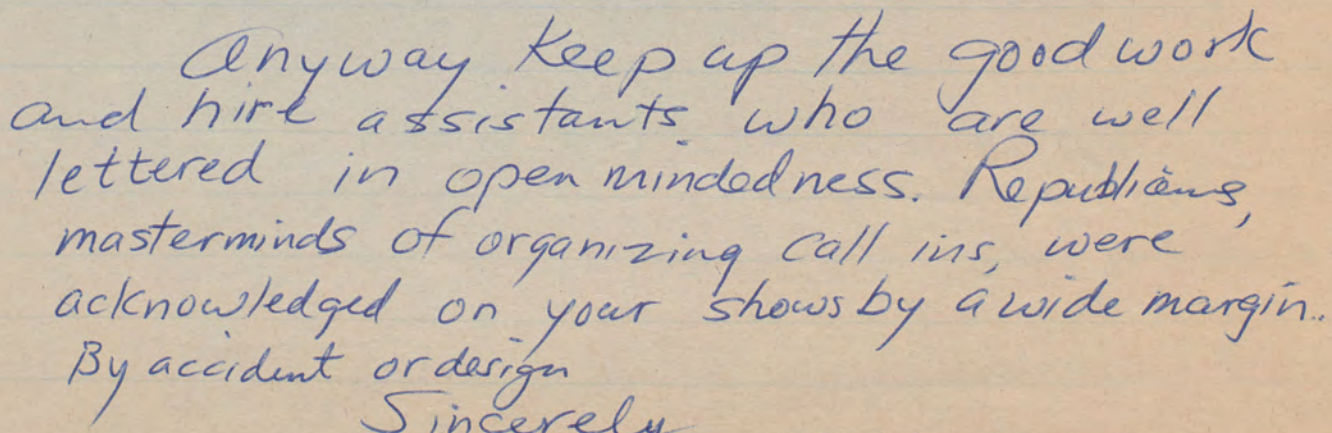 Anyway Keep up the good work
and hire assistants who are well
lettered in open mindedness. Republicans,
masterminds of organizing call ins, were
acknowledged on your shows by a wide margin..
By accident or design
Sincerely